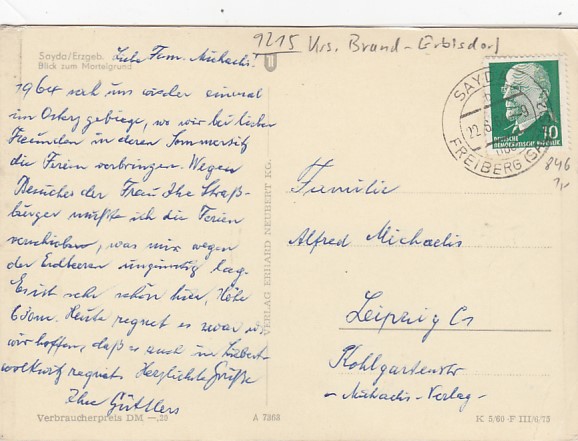 9215 Krs. Brand-Erbisdorf
Sayda/Erzgeb.
Blick zum Mortelgrund
Liebe Fam. Michaelis!
1964 hat uns wieder einmal
im Osterzgebirge, wo wir bei lieben
Freunden in deren Sommersitz
die Ferien verbringen. Wegen
Besuches der Frau Ihe Straß-
burger mußte ich die Ferien
verschieben, was mir wegen
der Erdbeeren ungünstig lag.
Es ist sehr schön hier, Höhe
680m. Heute regnet es zwar u.
wir hoffen, daß es auch in
regnet. Herzlichste Grüße
Ihre Güttlers
Verbraucherpreis DM —,20
A 7368
VERLAG ERHARD NEUBERT KG.
SAYDA
22.6
FREIBERG (SACHS)
DEUTSCHE
DEMOKRATISCHE REPUBLIK
10
846
Familie
Alfred Michaelis
Leipzig C1
Kohlgartenstr
- Michaelis-Verlag -
K 5/60 F III/6/73